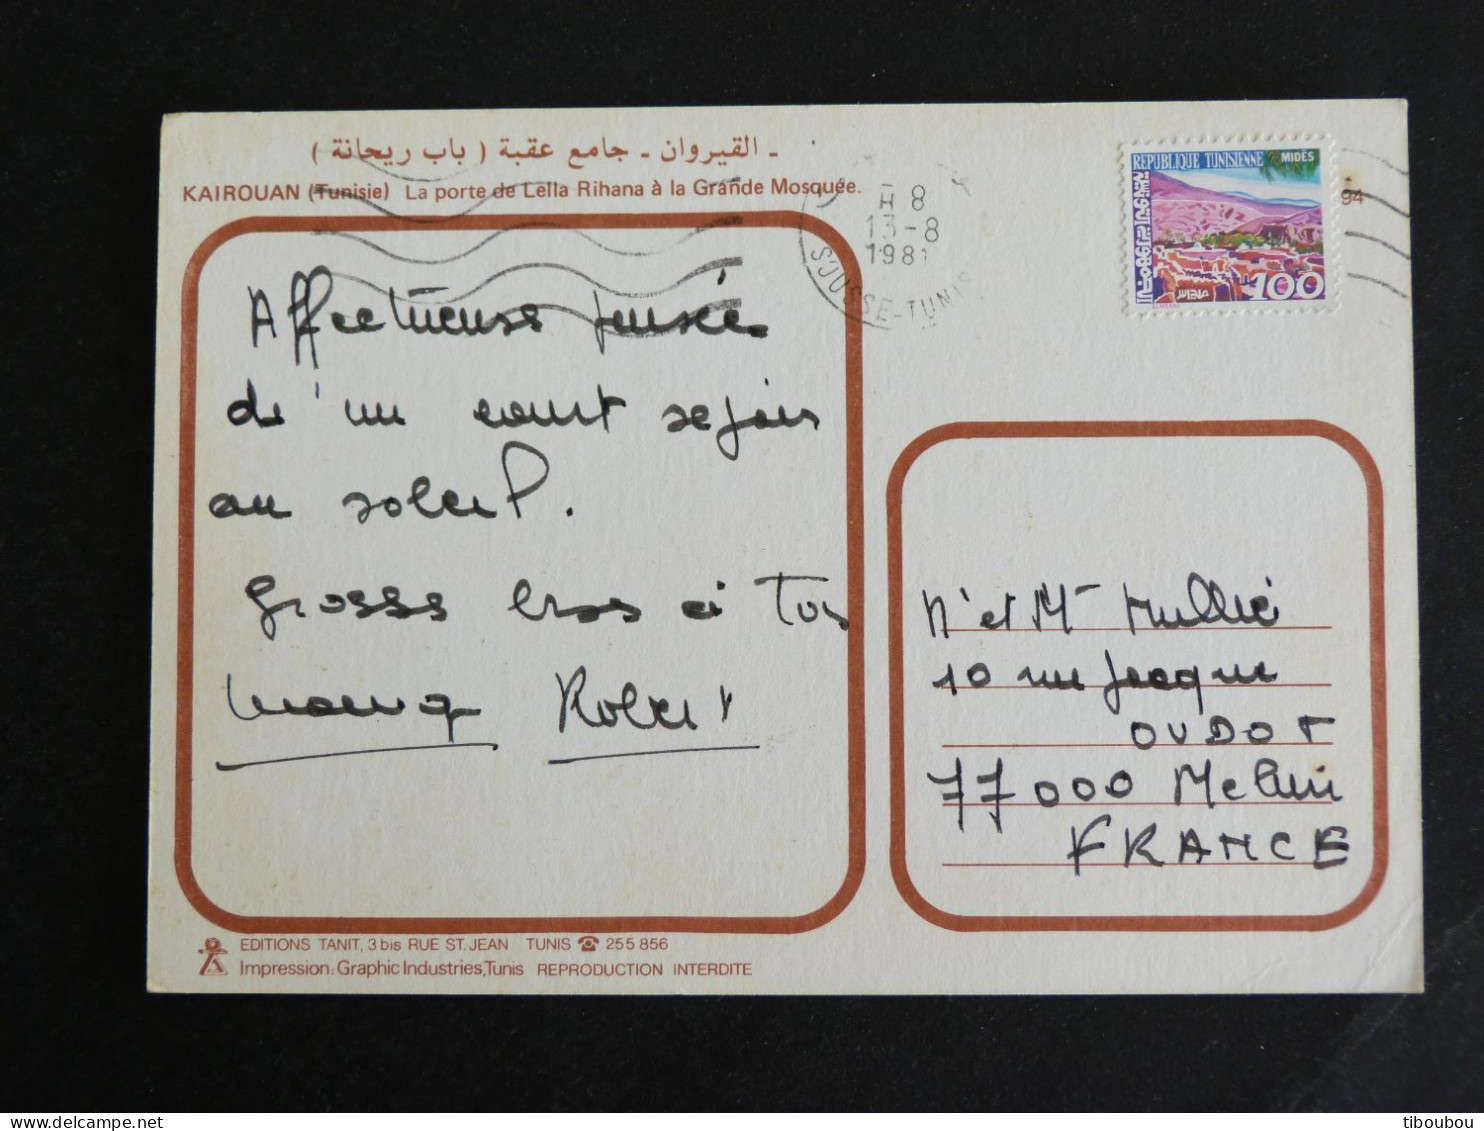 - القيروان - جامع عقبة ( باب ريحانة )
KAIROUAN (Tunisie) La porte de Lella Rihana à la Grande Mosquée.
94
REPUBLIQUE TUNISIENNE MIDÈS
100
H 8
13-8
1981
SOUSSE-TUNIS
Affectueuses pensées
d'un court sejour
au soleil.
Grosses bises à tous
Robert
M et Mme Mullié
10 rue Jacques
OUDOT
77000 Melun
FRANCE
EDITIONS TANIT, 3 bis RUE ST. JEAN TUNIS ☎ 255 856
Impression: Graphic Industries, Tunis REPRODUCTION INTERDITE
tiboubou